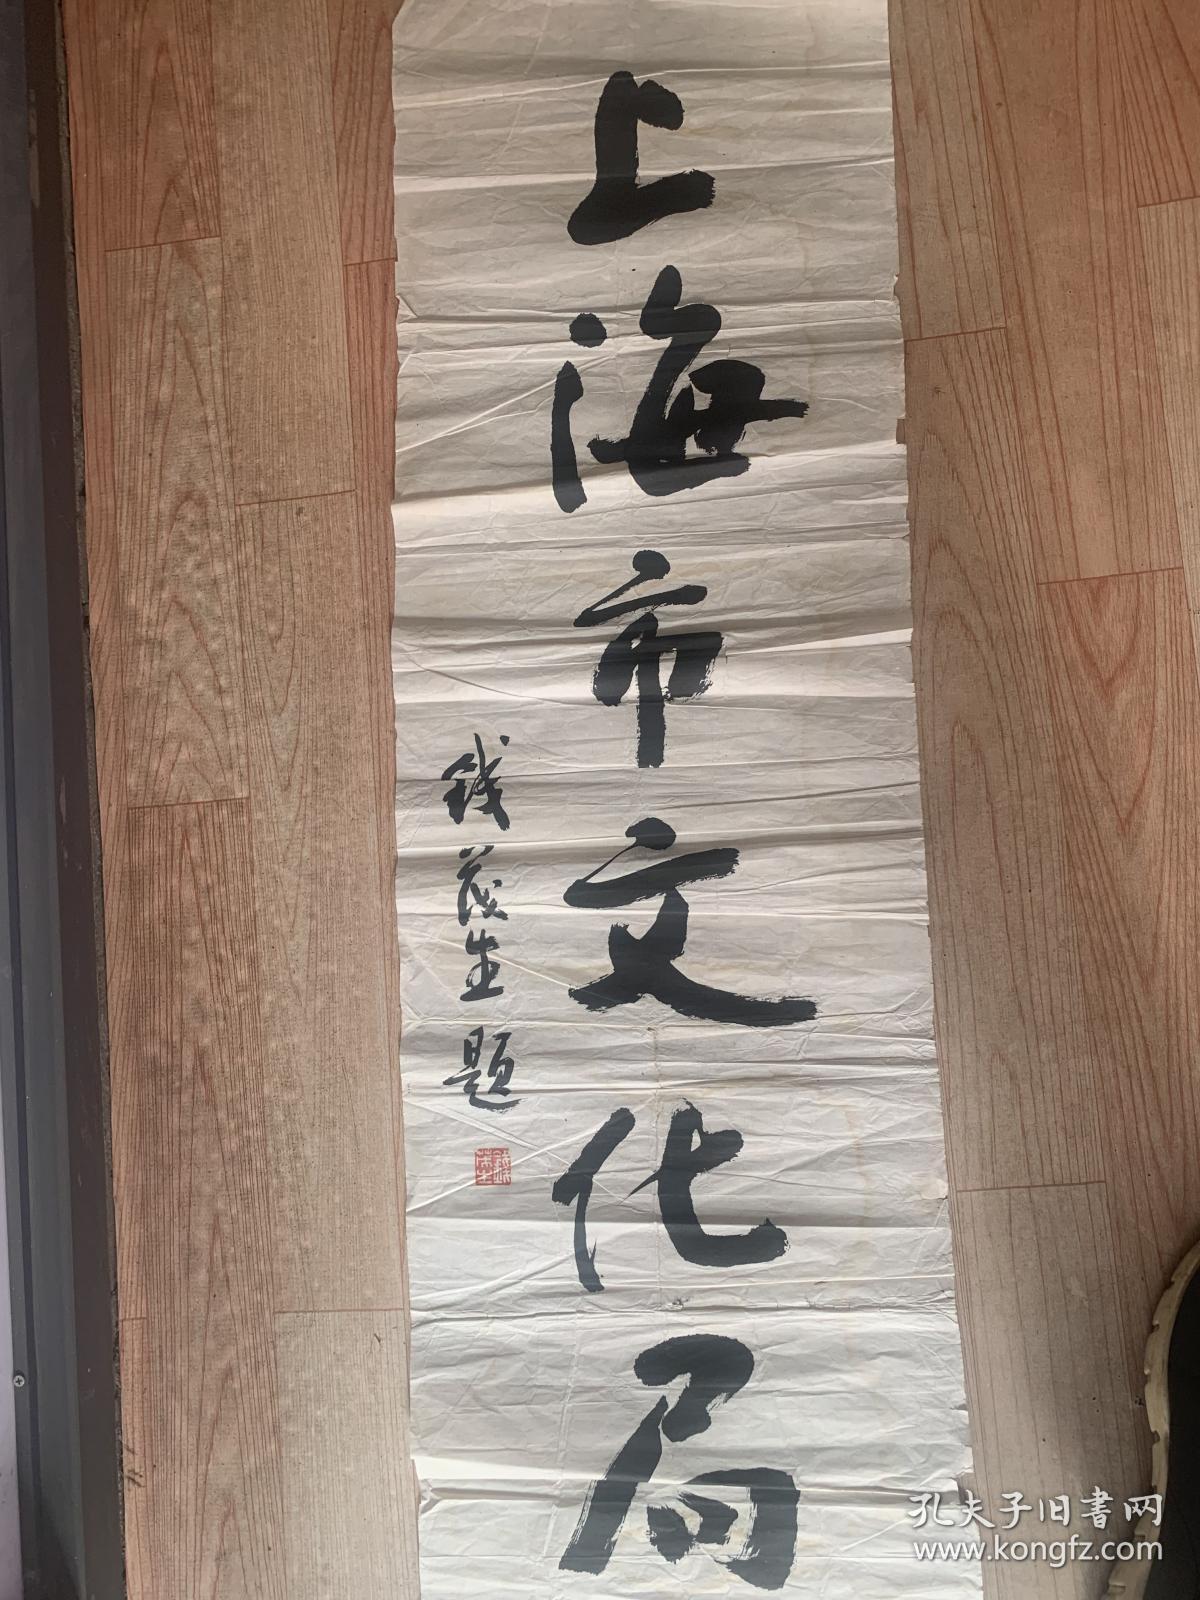 上海市文化局
钱茂生题
孔夫子旧書网
www.kongfz.com